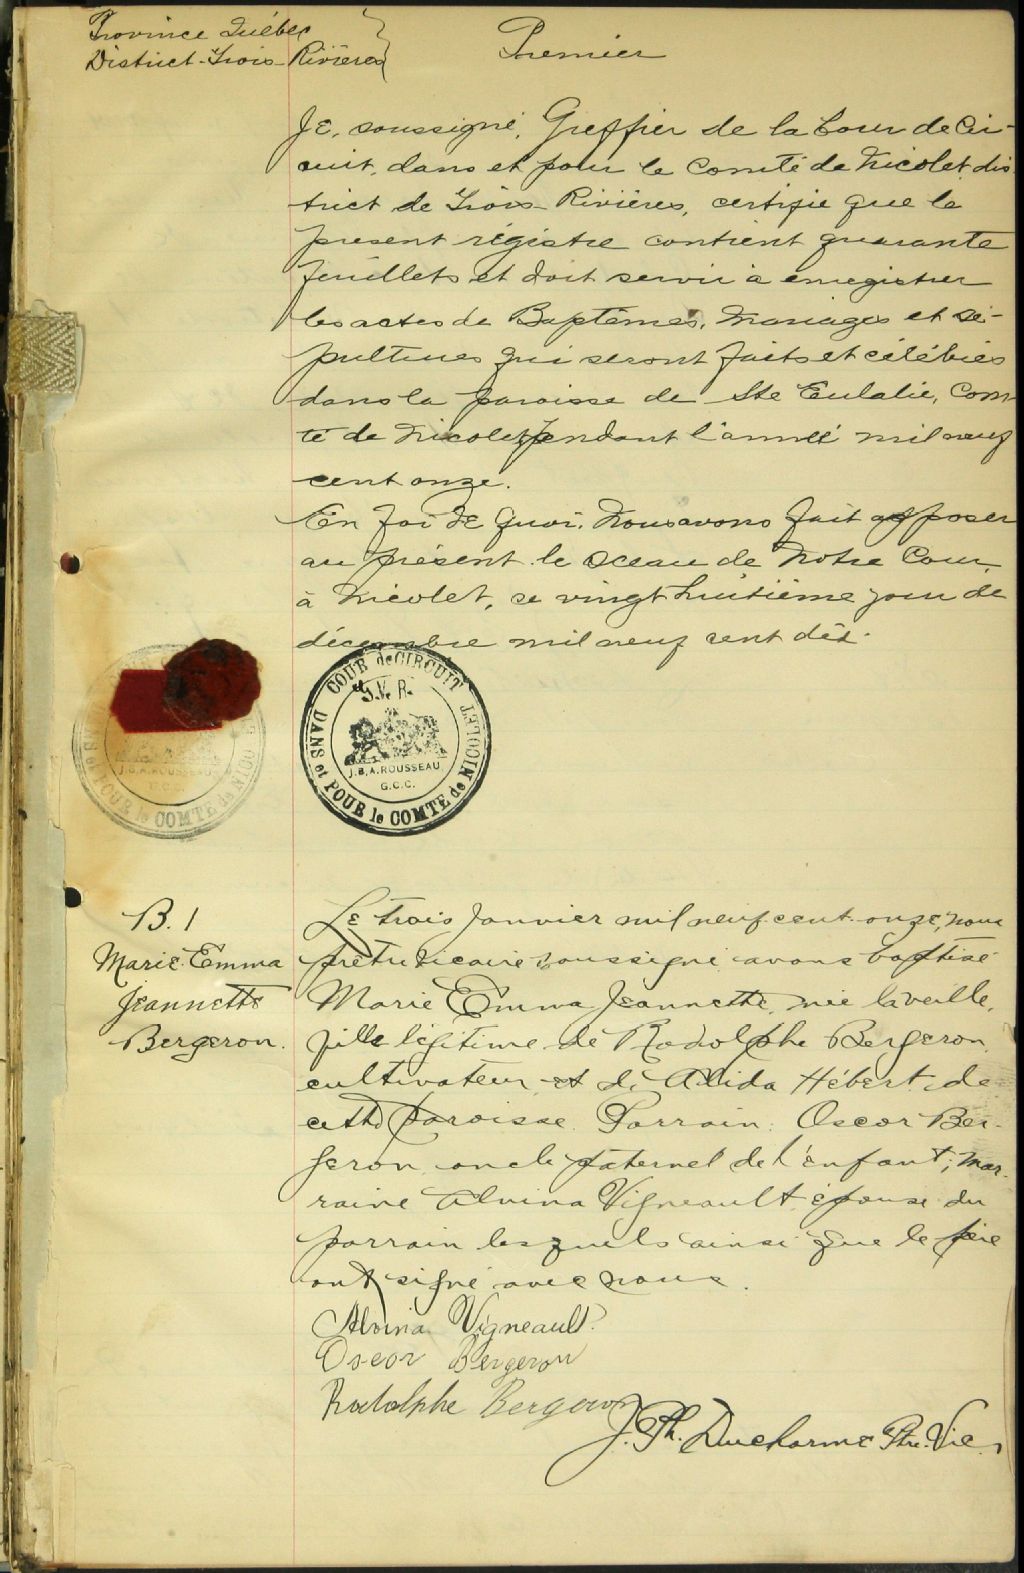 Province Québec
District-Trois-Rivières
Premier
Je, soussigné, Greffier de la Cour de Cir-
cuit, dans et pour le Comté de Nicolet, dis-
trict de Trois-Rivières, certifie que le
présent régistre contient quarante
feuillets et doit servir à enregistrer
les actes de Baptêmes, Mariages et Sé-
pultures qui seront faits et célébrés
dans la paroisse de Ste Eulalie, Com-
té de Nicolet, pendant l'année mil neuf
cent onze.
En foi de quoi, Nous avons fait apposer
au présent le Sceau de Notre Cour,
à Nicolet, ce vingt huitième jour de
décembre mil neuf cent dix.
COUR de CIRCUIT
DANS et POUR le COMTE de NICOLET
J.B.A. ROUSSEAU
G.C.C.
J.B.A. ROUSSEAU
G.C.C.
POUR le COMTE de NICO
B. 1
Marie Emma
Jeannette
Bergeron.
Le trois Janvier mil neuf cent onze, nous
prêtre vicaire soussigné avons baptisé
Marie Emma Jeannette, née la veille,
fille légitime de Rodolphe Bergeron
cultivateur et de Alida Hébert de
cette paroisse. Parrain: Oscar Ber-
geron oncle paternel de l'enfant; mar-
raine Alvina Vigneault épouse du
parrain lesquels ainsi que le père
ont signé avec nous.
Alvina Vigneault
Oscar Bergeron
Rodolphe Bergeron
J. Ph. Ducharme Ptre. Vic.